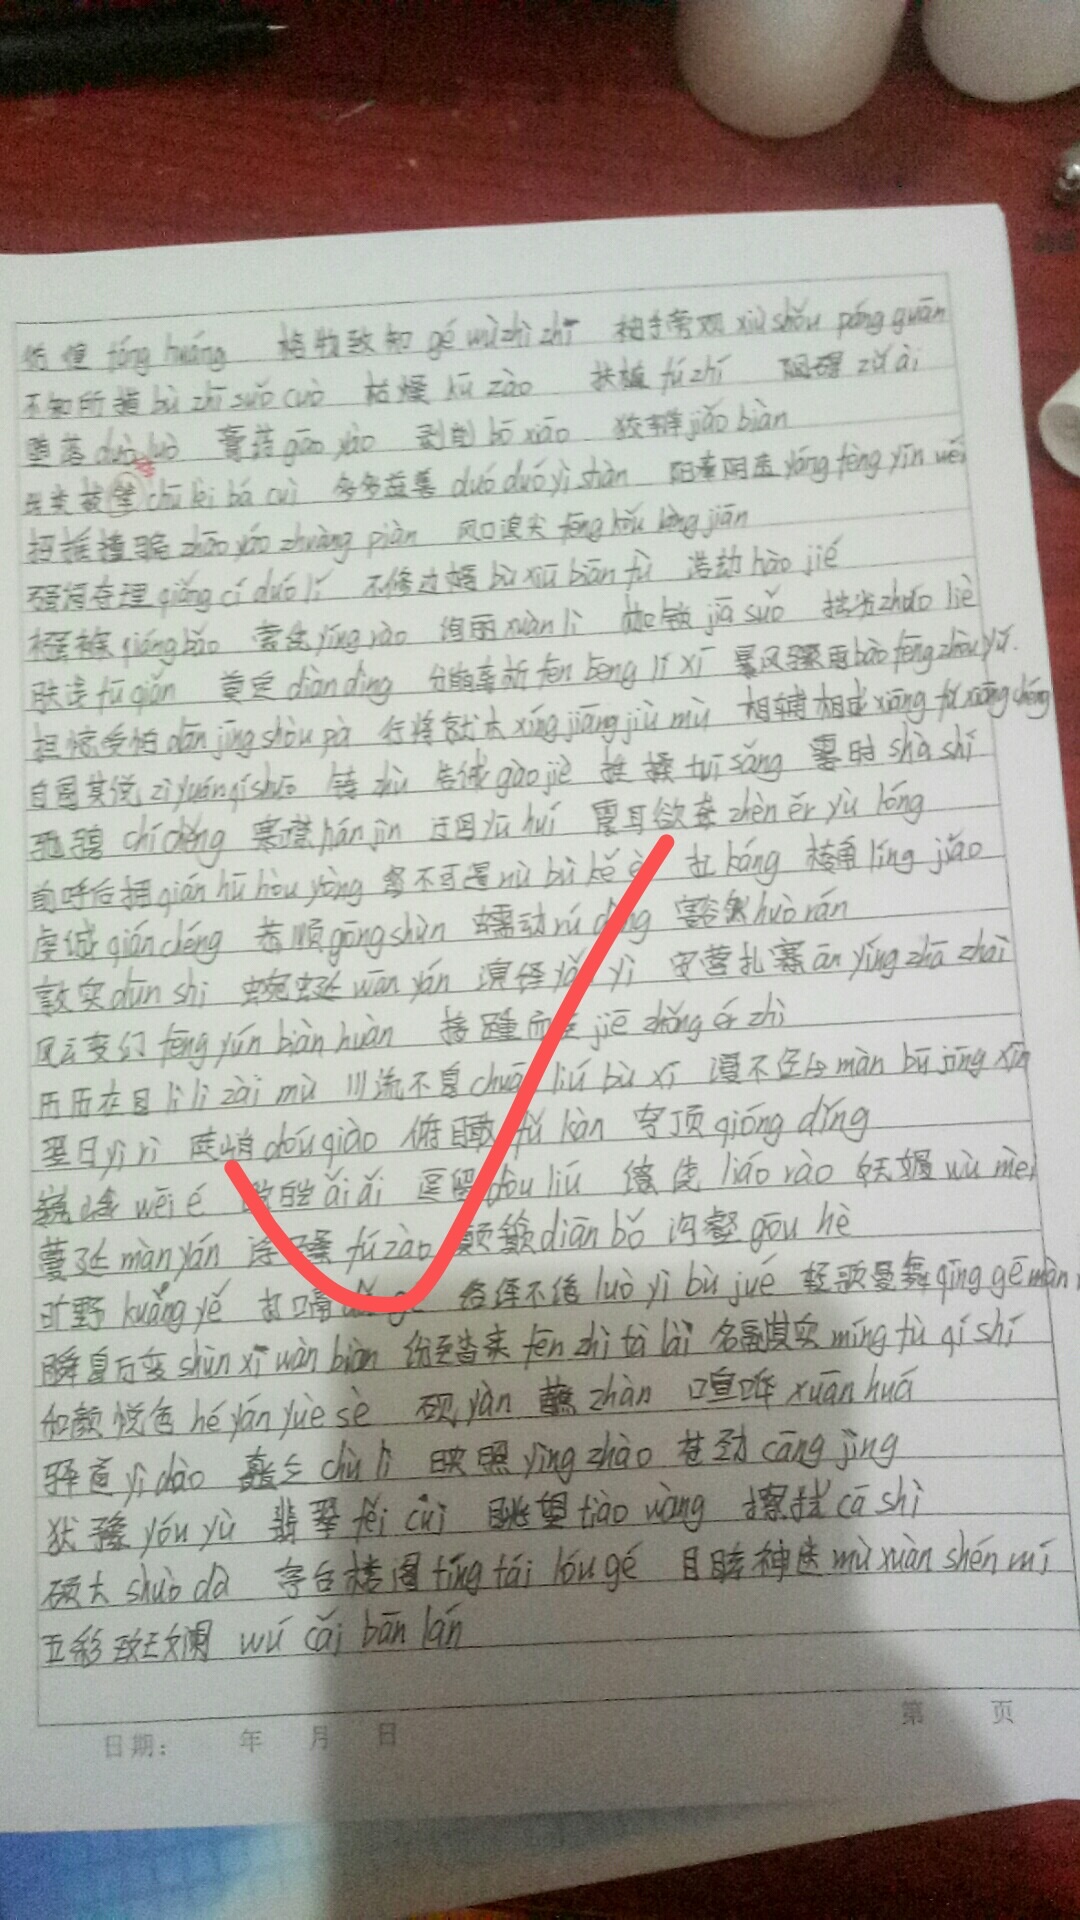 彷徨 páng huáng 格物致知 gé wù zhì zhī 袖手旁观 xiù shǒu páng guān
不知所措 bù zhī suǒ cuò 枯燥 kū zào 扶植 fú zhí 阻碍 zǔ ài
堕落 duò luò 膏药 gāo yào 剥削 bō xiāo 狡辩 jiǎo biàn
出类拔萃 chū lèi bá cuì 多多益善 duó duó yì shàn 阳奉阴违 yáng fèng yīn wéi
招摇撞骗 zhāo yáo zhuàng piàn 风口浪尖 fēng kǒu làng jiān
强词夺理 qiǎng cí duó lǐ 不修边幅 bù xiū biān fú 浩劫 hào jié
襁褓 qiáng bǎo 萦绕 yíng rào 绚丽 xuàn lì 枷锁 jiā suǒ 拙劣 zhuō liè
肤浅 fū qiǎn 奠定 diàn dìng 分崩离析 fēn bēng lí xī 暴风骤雨 bào fēng zhòu yǔ.
担惊受怕 dān jīng shòu pà 行将就木 xíng jiāng jiù mù 相辅相成 xiāng fǔ xiāng chéng
自圆其说 zì yuán qí shuō 铸 zhù 告诫 gào jiè 推搡 tuī sǎng 霎时 shà shí
驰骋 chí chěng 寒噤 hán jìn 迂回 yū huí 震耳欲聋 zhèn ěr yù lóng
前呼后拥 qián hū hòu yōng 怒不可遏 nù bù kě è 扛 káng 棱角 líng jiǎo
虔诚 qián chéng 恭顺 gōng shùn 蠕动 rú dòng 豁然 huò rán
敦实 dūn shi 蜿蜒 wān yán 演绎 yǎn yì 安营扎寨 ān yíng zhā zhài
风云变幻 fēng yún biàn huàn 接踵而至 jiē zhǒng ér zhì
历历在目 lì lì zài mù 川流不息 chuān liú bù xī 漫不经心 màn bù jīng xīn
翌日 yì rì 陡峭 dǒu qiào 俯瞰 fǔ kàn 穹顶 qióng dǐng
巍峨 wēi é 皑皑 ái ái 逗留 dòu liú 缭绕 liáo rào 妩媚 wǔ mèi
蔓延 màn yán 浮躁 fú zào 颠簸 diān bǒ 沟壑 gōu hè
旷野 kuàng yě 打嗝 dǎ gé 络绎不绝 luò yì bù jué 轻歌曼舞 qīng gē màn
瞬息万变 shùn xī wàn biàn 纷至沓来 fēn zhì tà lái 名副其实 míng fù qí shí
和颜悦色 hé yán yuè sè 砚 yàn 蘸 zhàn 喧哗 xuān huá
驿道 yì dào 矗立 chù lì 映照 yìng zhào 苍劲 cāng jìng
犹豫 yóu yù 翡翠 fěi cuì 眺望 tiào wàng 擦拭 cā shì
硕大 shuò dà 亭台楼阁 tíng tái lóu gé 目眩神迷 mù xuàn shén mí
五彩斑斓 wǔ cǎi bān lán
日期: 年 月 日 第 页